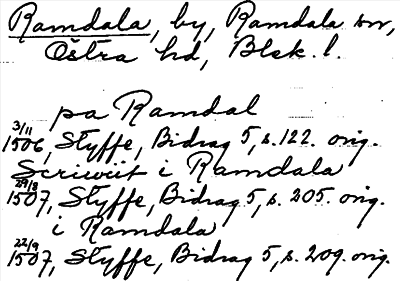 Ramdala, by, Ramdala sn,
Östra hd, Blek. l.
pa Ramdal
3/11 1506, Styffe, Bidrag 5, s. 122. orig.
Scriwit i Ramdala
29/8 1507, Styffe, Bidrag 5, s. 205. orig.
i Ramdala
22/9 1507, Styffe, Bidrag 5, s. 209. orig.